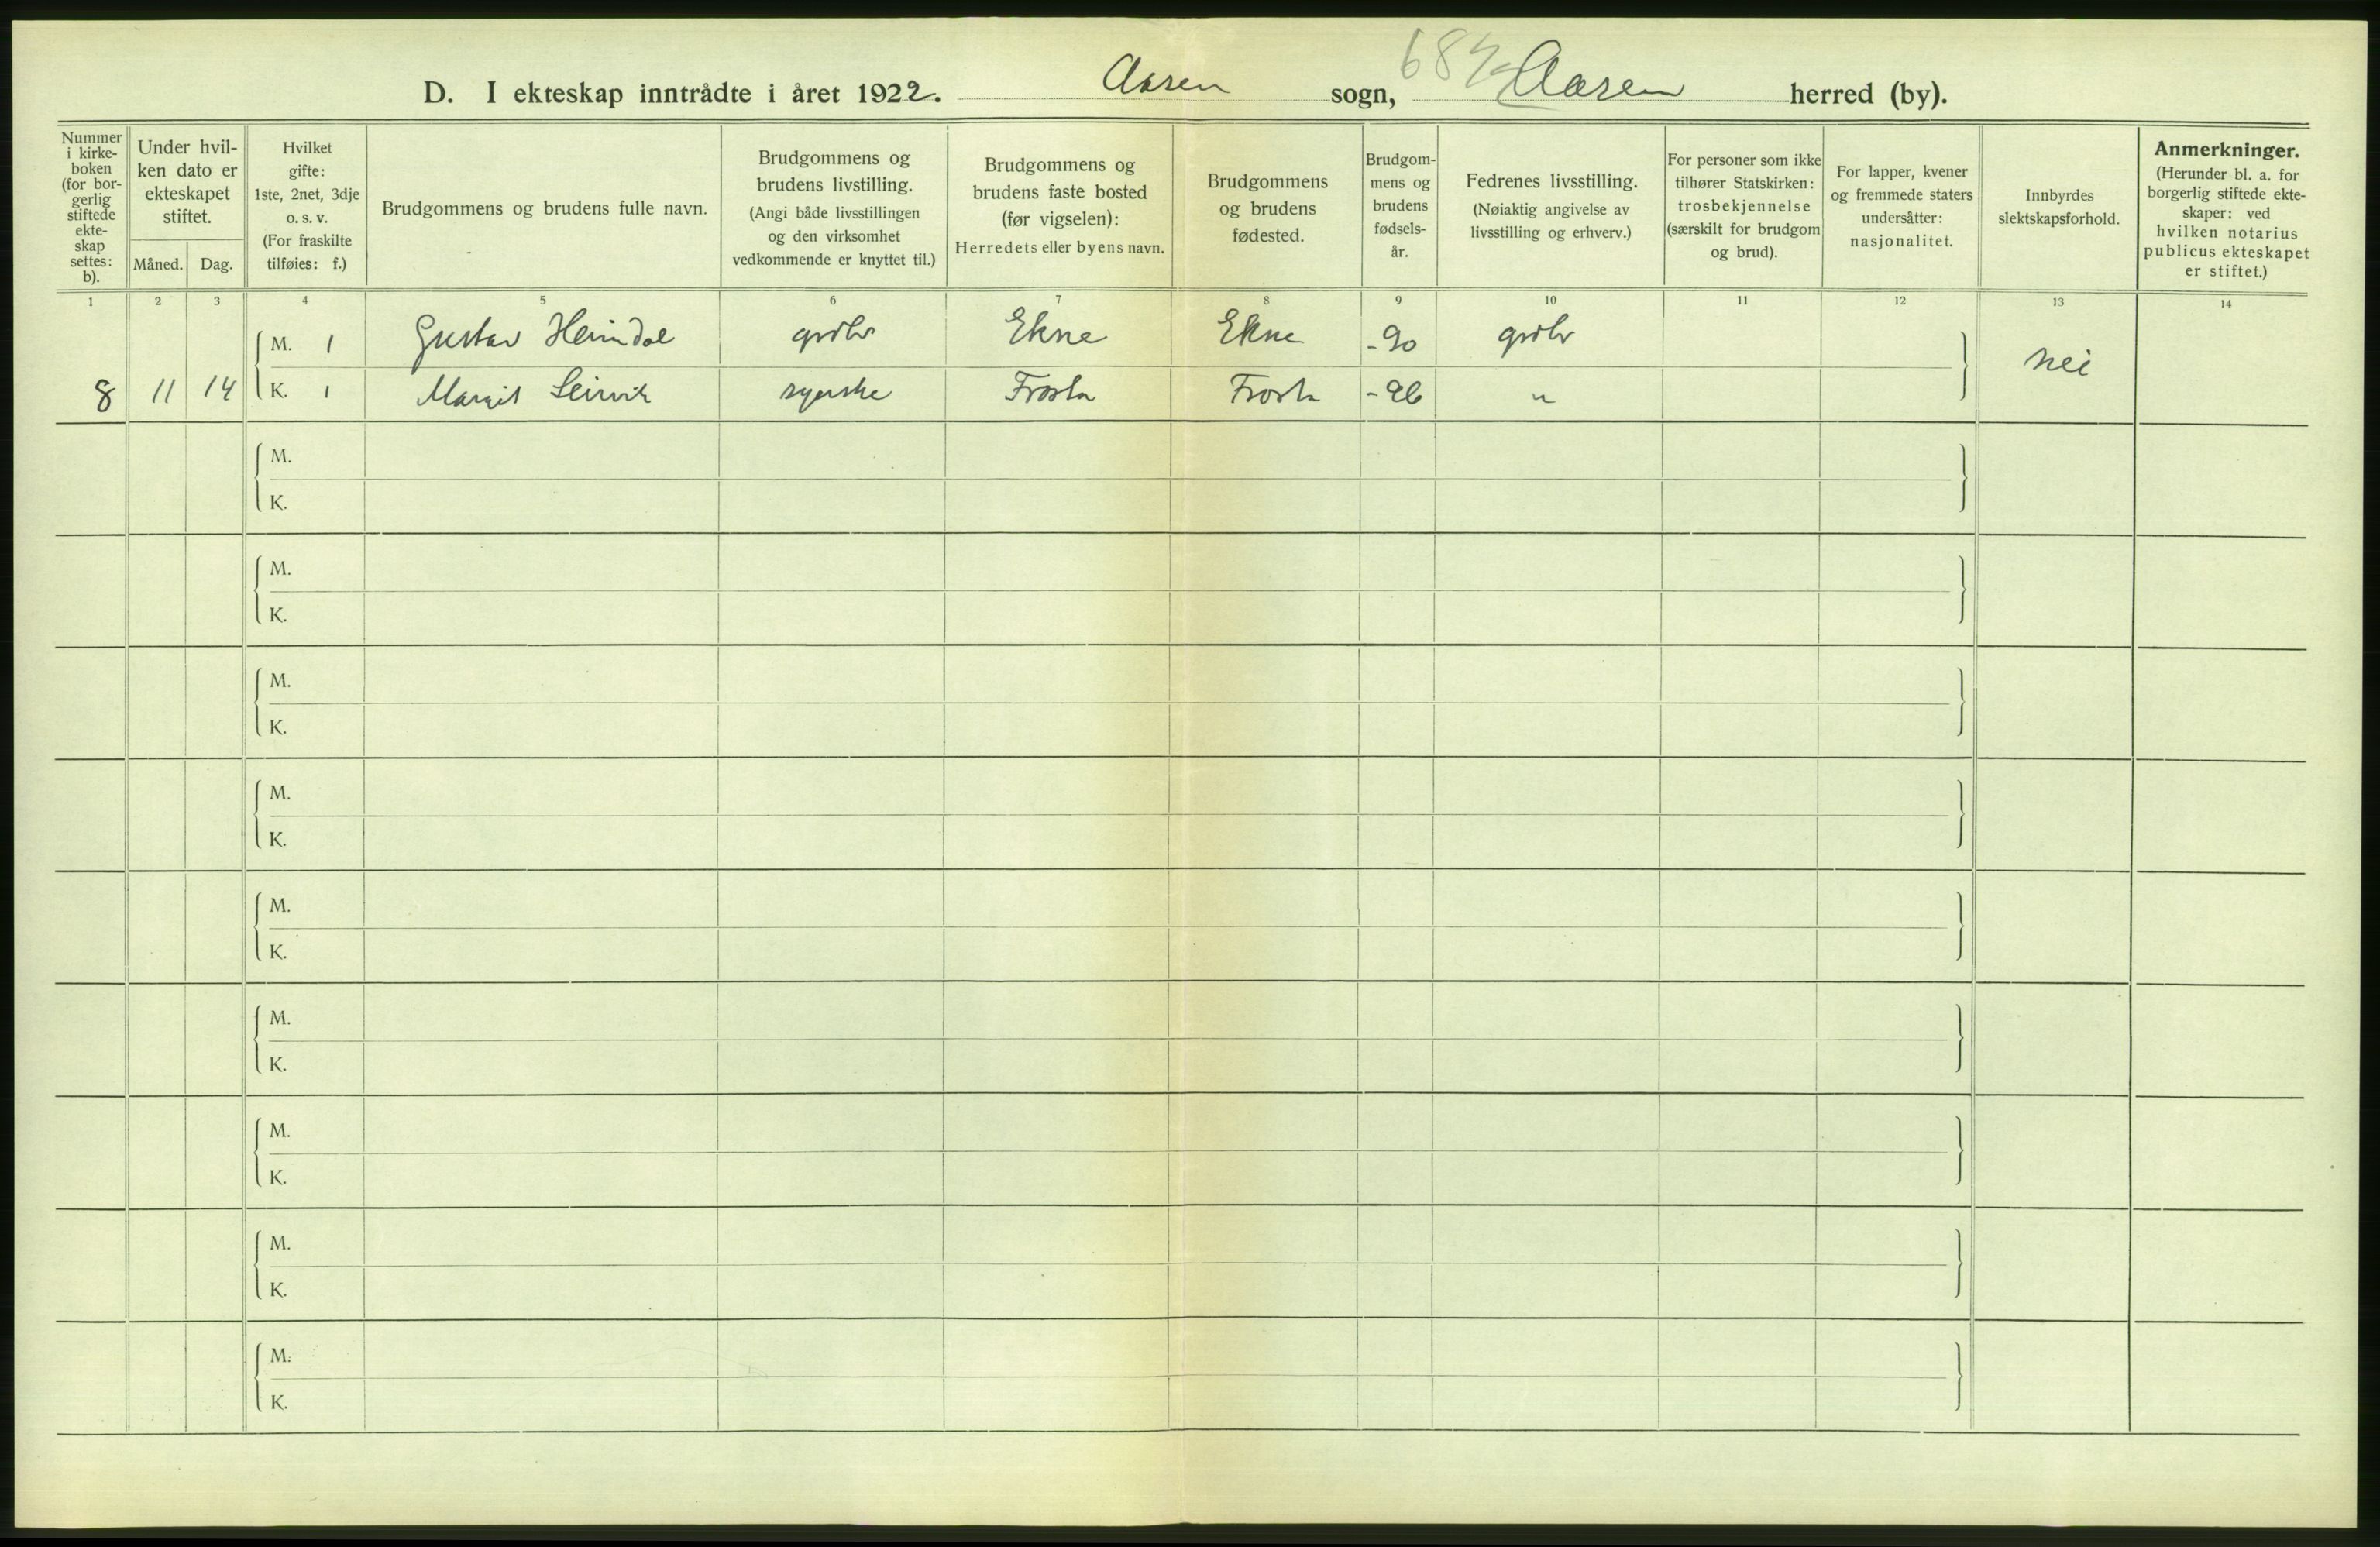 D. I ekteskap inntrådte i året 1922. Aasen sogn, Aasen herred (by).
Nummer i kirke-boken (for bor-gerlig stiftede ekte-skap settes: b).
Under hvil-ken dato er ekteskapet stiftet.
Måned. Dag.
Hvilket gifte: 1ste, 2net, 3dje o. s. v. (For fraskilte tilføies: f.)
Brudgommens og brudens fulle navn.
Brudgommens og brudens livstilling. (Angi både livsstillingen og den virksomhet vedkommende er knyttet til.)
Brudgommens og brudens faste bosted (før vigselen): Herredets eller byens navn.
Brudgommens og brudens fødested.
Brudgom-mens og brudens fødsels-år.
Fedrenes livsstilling. (Nøiaktig angivelse av livsstilling og erhverv.)
For personer som ikke tilhører Statskirken: trosbekjennelse (særskilt for brudgom og brud).
For lapper, kvener og fremmede staters undersåtter: nasjonalitet.
Innbyrdes slektskapsforhold.
Anmerkninger. (Herunder bl. a. for borgerlig stiftede ekte-skaper: ved hvilken notarius publicus ekteskapet er stiftet.)
1 2 3 4 5 6 7 8 9 10 11 12 13 14
M. 1 Gustav Heimdal Ekne Ekne -90 nei
8 11 14 K. 1 Margit syerske Frosta Frosta -96 "
M.
K.
M.
K.
M.
K.
M.
K.
M.
K.
M.
K.
M.
K.
M.
K.
M.
K.